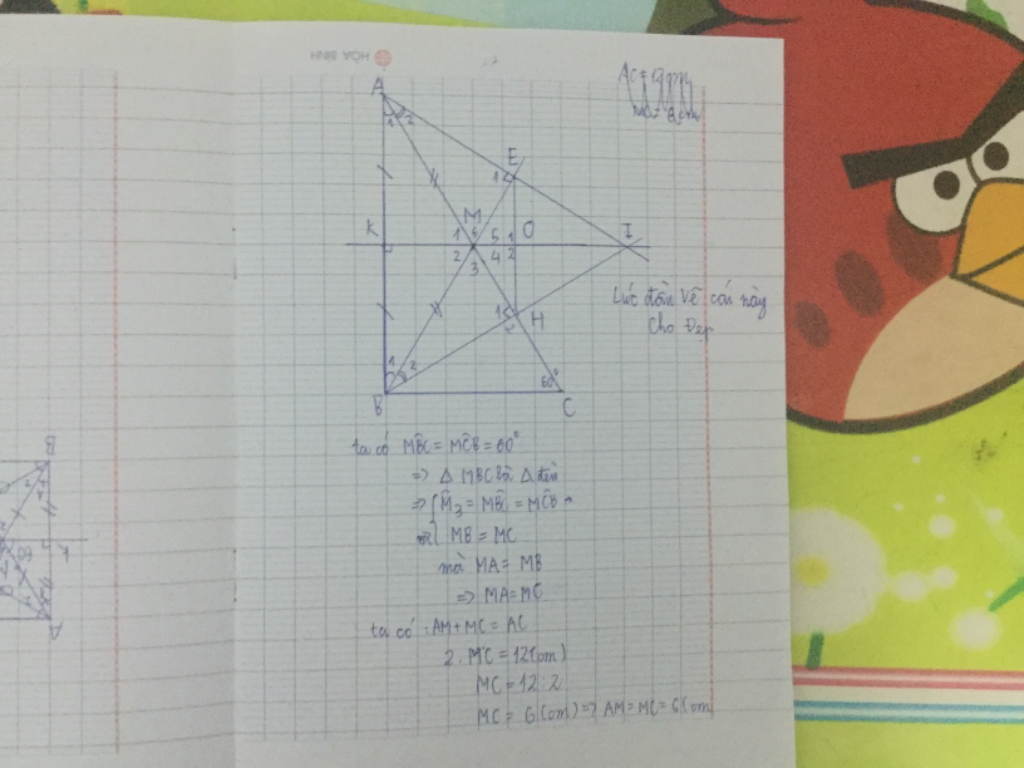 HÒA BÌNH
A
1 2
E
1
K
M
1 6 5 1
O
I
2 3 4 2
1 H
Lúc đầu vẽ cái này
cho đẹp
1 2
60°
B
C
ta có MBC = MCB = 60°
=> Δ MBC là Δ đều
=> M3 = MBC = MCB
MB = MC
mà MA = MB
=> MA = MC
ta có : AM + MC = AC
2. MC = 12(cm)
MC = 12 : 2
MC = 6 (cm) => AM = MC = 6(cm
B
K
A